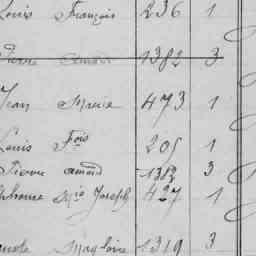 Louis François 236 1
Pierre Amand 1382 3
Jean Marie 473 1
Louis Fois 205 1
Pierre Amand 1382 3
Alphonse Mie Joseph 427 1
Magloire 1319 3